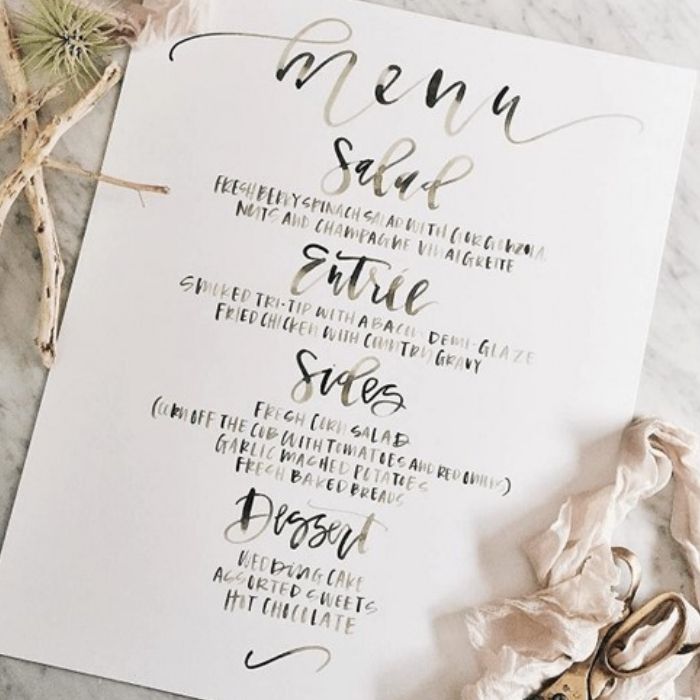 menu
Salad
FRESH BERRY SPINACH SALAD WITH GORGONZOLA
NUTS AND CHAMPAGNE VINAIGRETTE
Entrée
SMOKED TRI-TIP WITH A BACON DEMI-GLAZE
FRIED CHICKEN WITH COUNTRY GRAVY
Sides
FRESH CORN SALAD
(CORN OFF THE COB WITH TOMATOES AND RED ONIONS)
GARLIC MASHED POTATOES
FRESH BAKED BREADS
Dessert
WEDDING CAKE
ASSORTED SWEETS
HOT CHOCOLATE